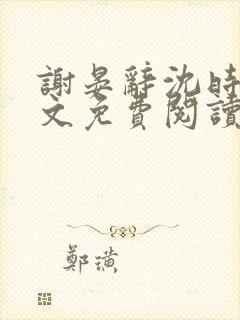 謝晏辭沈時
文免費閱讀
鄭璜